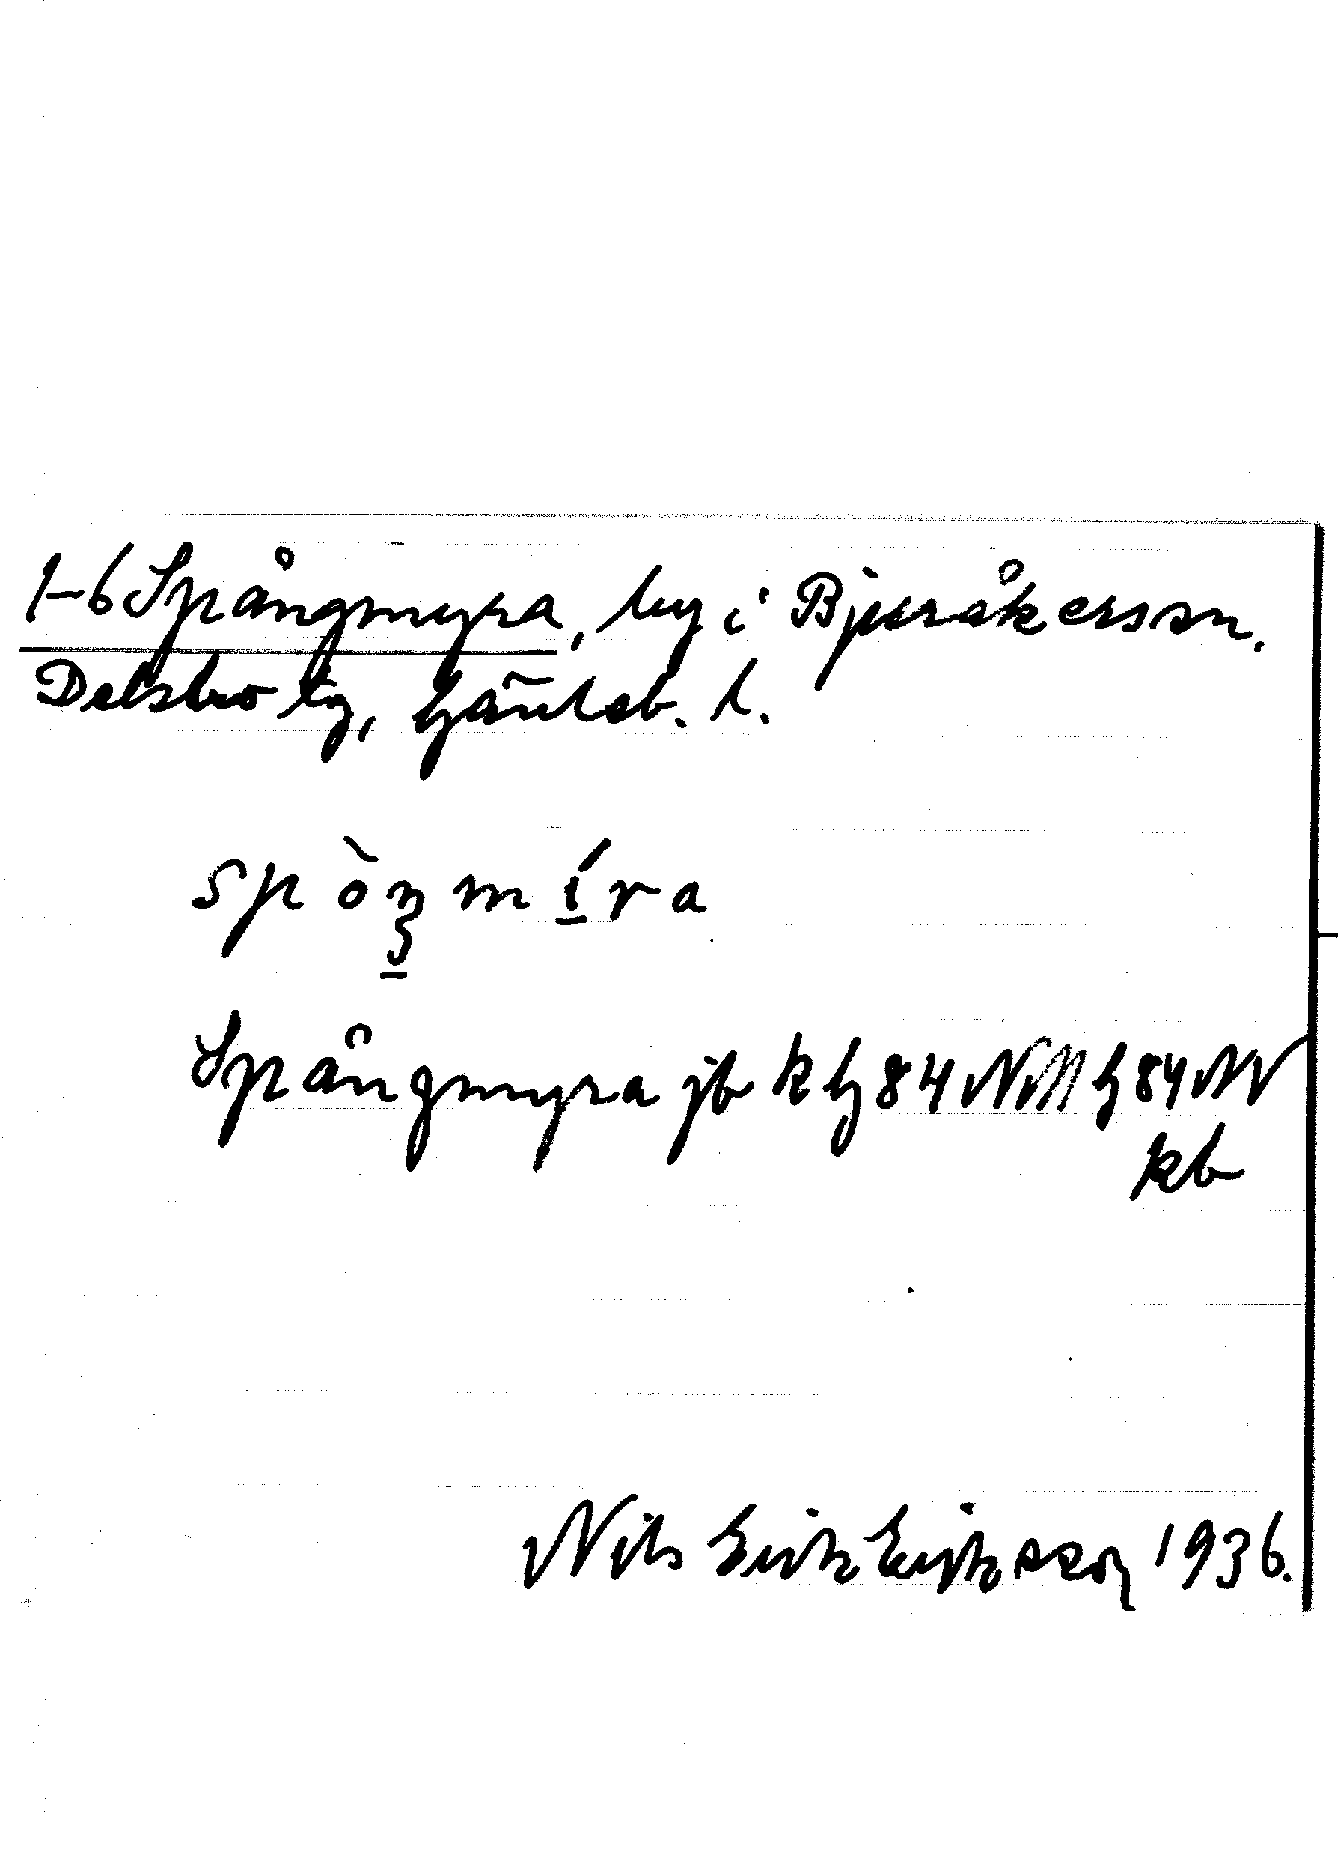 1-6 Spångmyra, by i Bjuråkerssn.
Delsbo tg, Gävleb. l.
spòŋmíra
Spångmyra jb k h 84 NV h 84 NV
kb
Nils Erik Eriksson 1936.